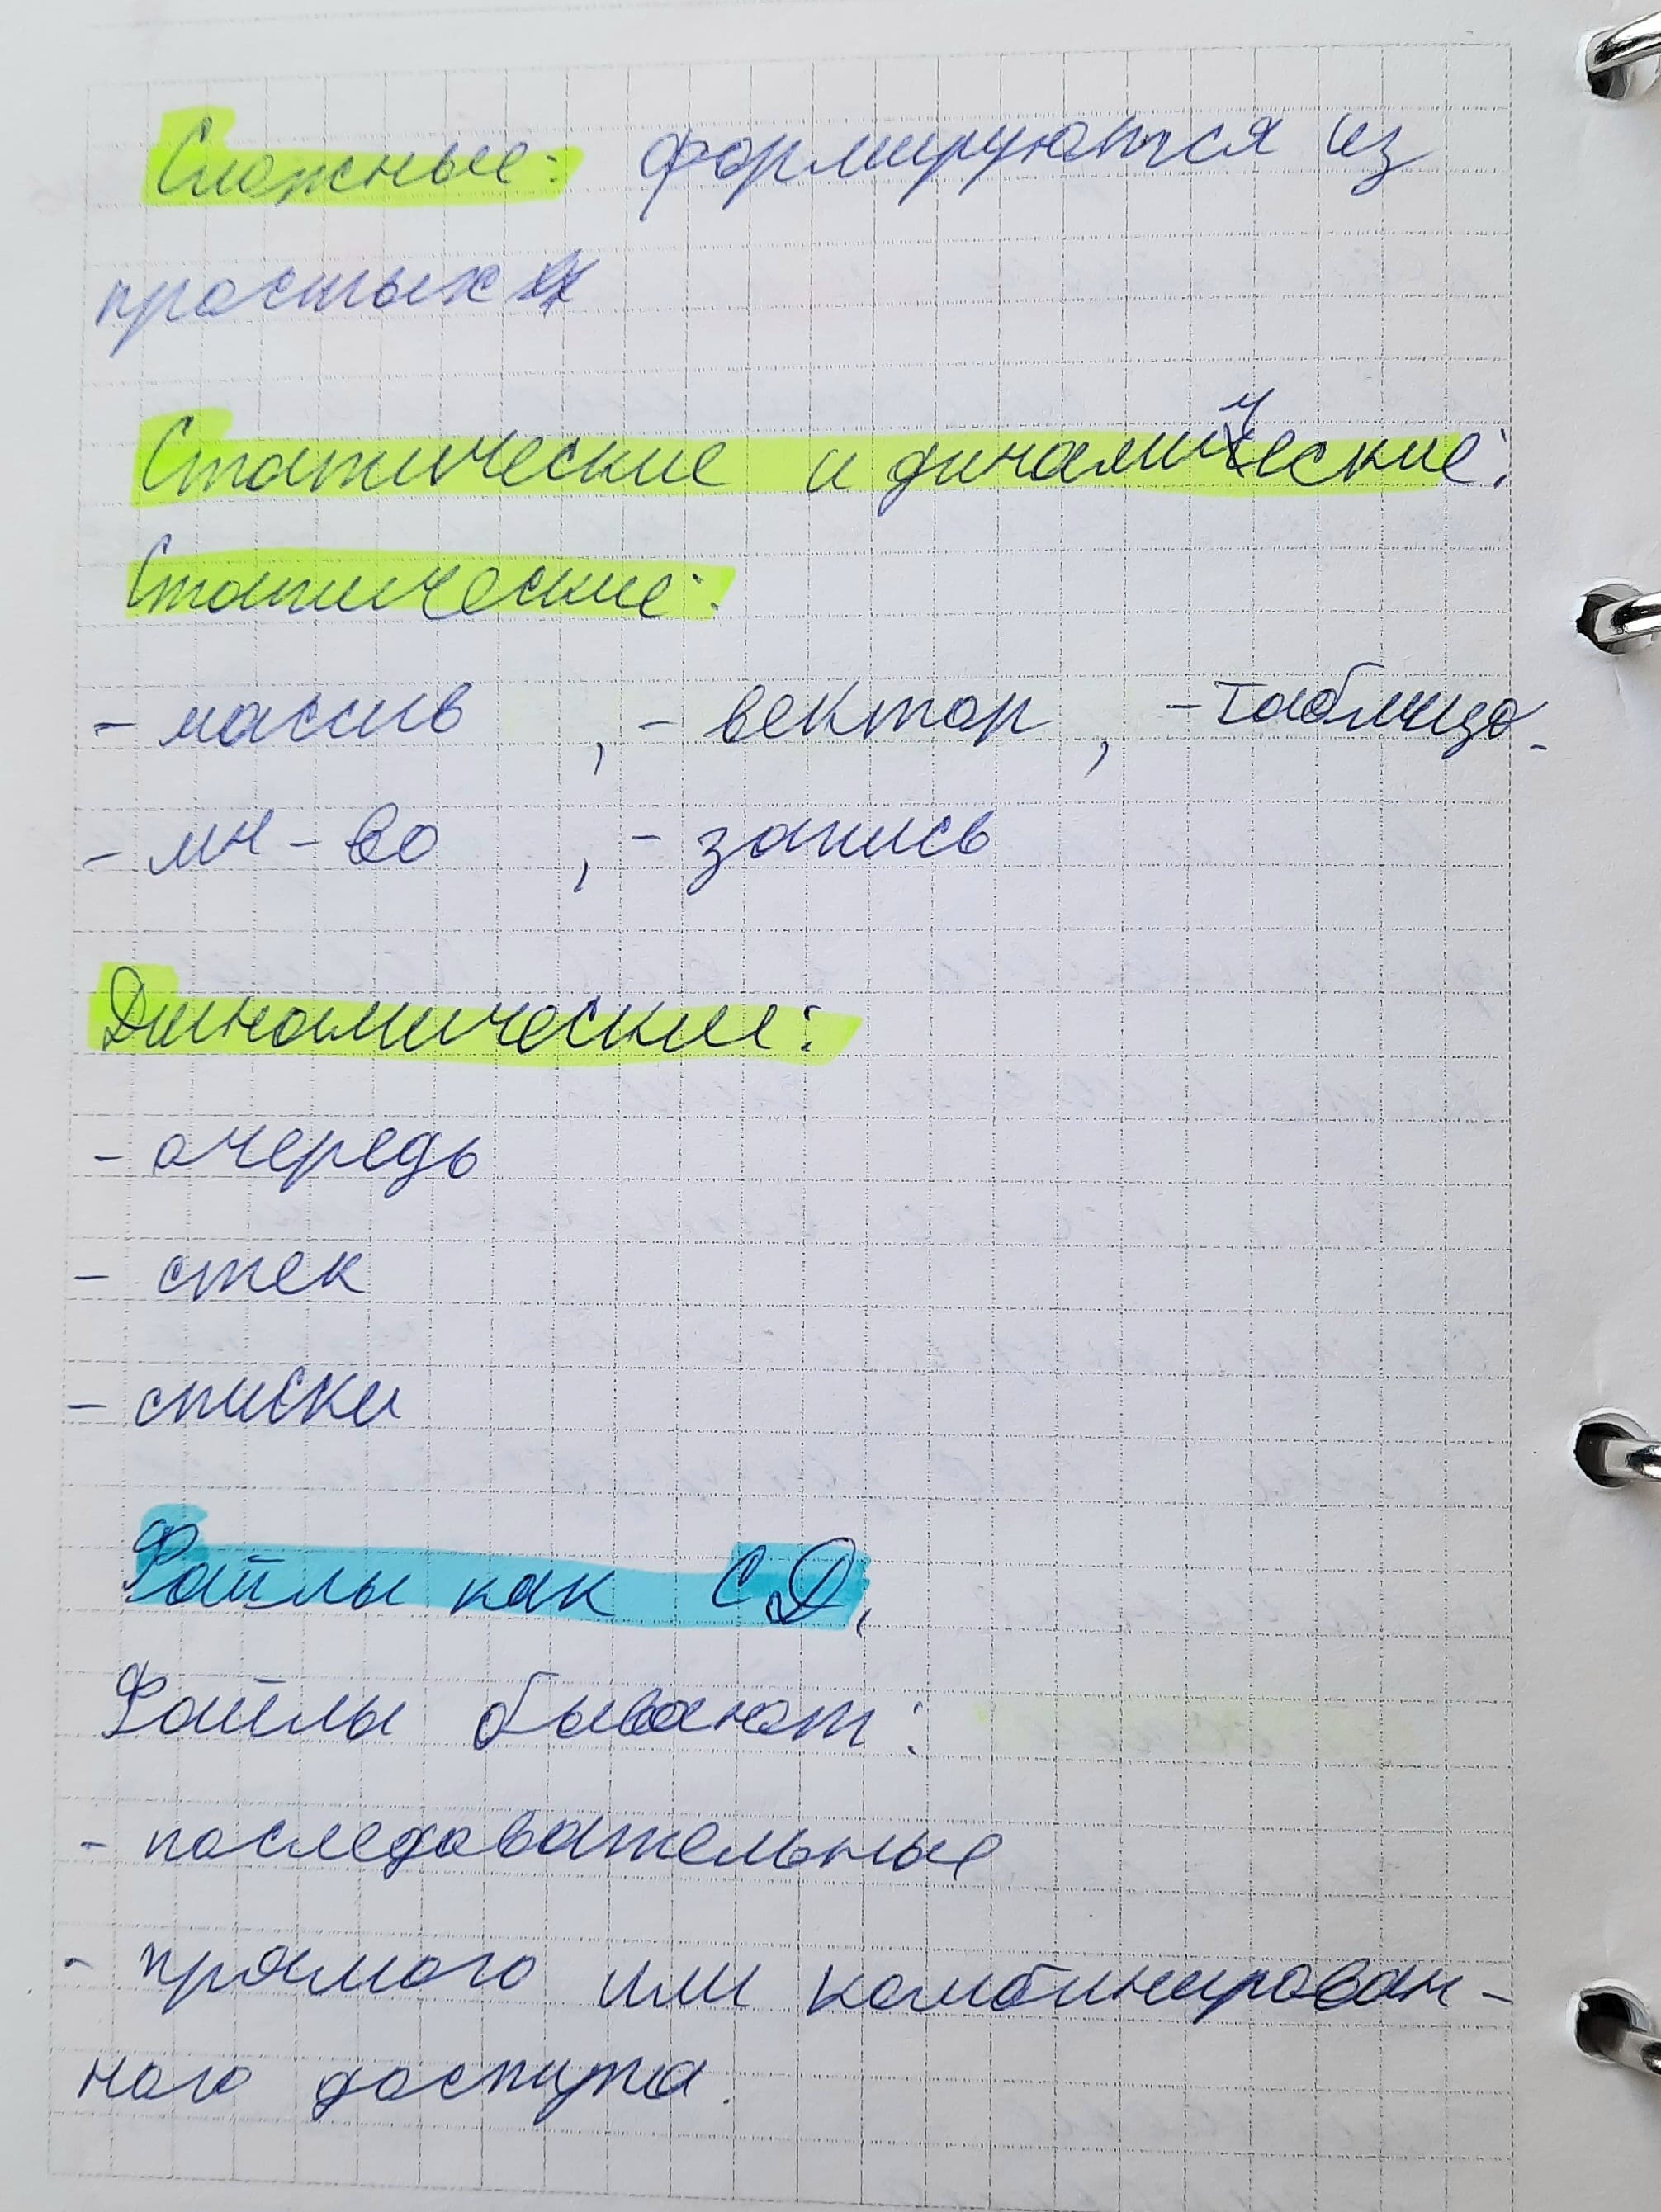 Сложные: формируются из
простых
Статические и динамические:
Статические:
- массив , - вектор , - таблица.
- мн-во , - запись
Динамические:
- очередь
- стек
- списки
Файлы как СД.
Файлы бывают:
- последовательные
- прямого или комбинирован-
ного доступа.